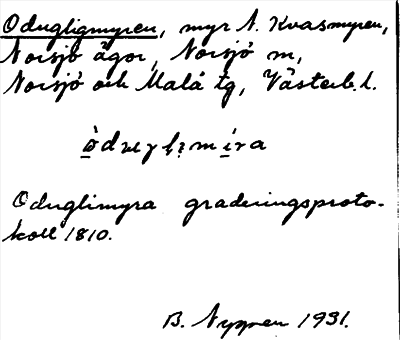 Odugligmyren, myr N. Kvasmyren,
Norsjö ägor, Norsjö m,
Norsjö och Malå tg, Västerb. l.
Oduglimyra graderingsproto-
koll 1810.
B. Nygren 1931.